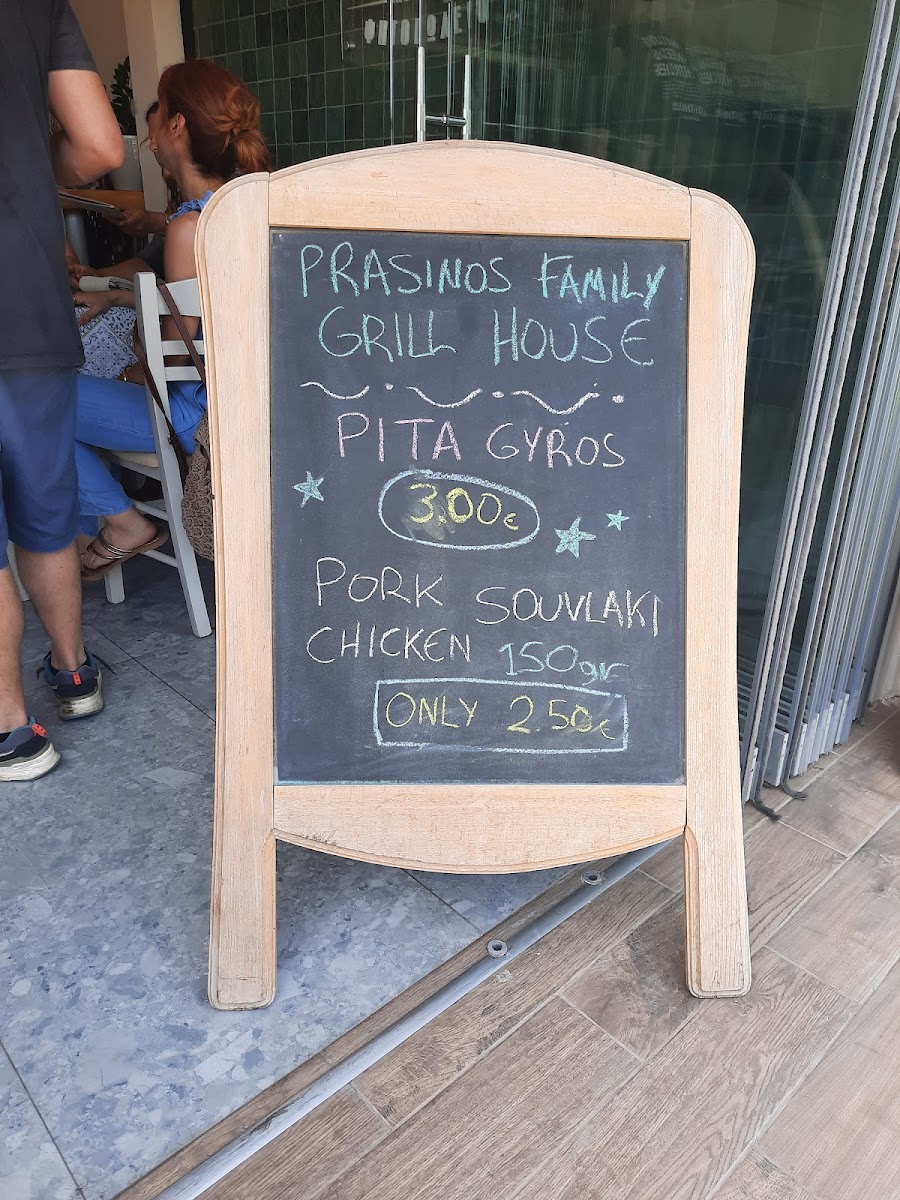 PRASINOS FAMILY
GRILL HOUSE
PITA GYROS
3.00€
PORK SOUVLAKI
CHICKEN 150gr
ONLY 2.50€